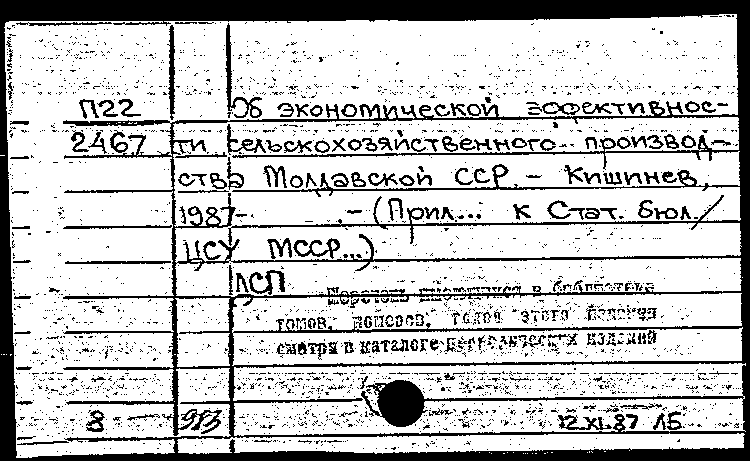 П22 Об экономической эффективнос-
2467 ти сельскохозяйственного производ-
ства Молдавской ССР. - Кишинев,
1987- .-(Прил... к Стат. бюл./
ЦСУ МССР...)
ДСП
Перечень имеющихся в библиотеке
томов, номеров, годов этого издания
смотри в каталоге периодических изданий
8 983 12.XI.87 ЛБ